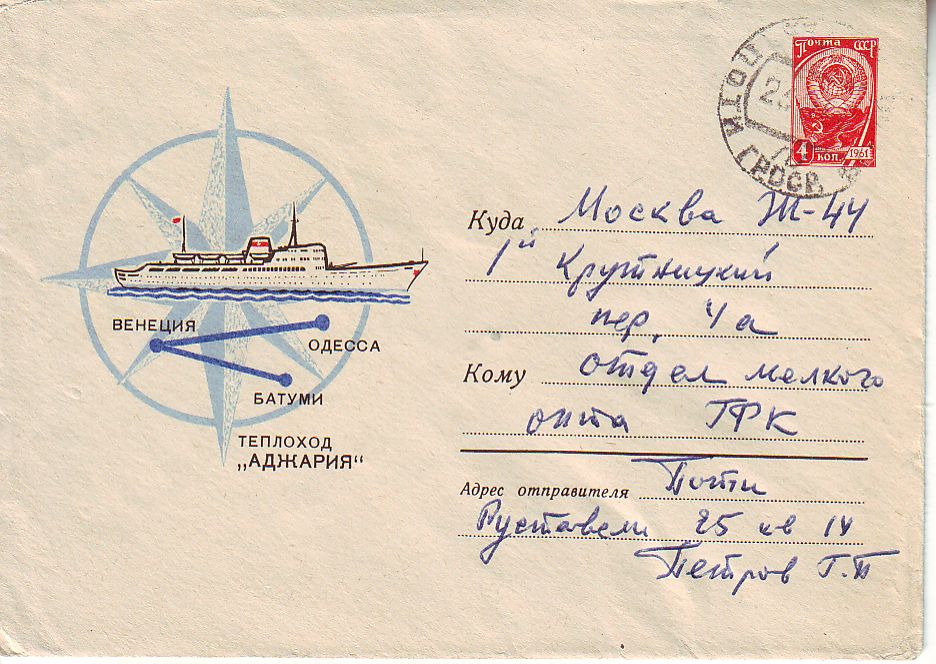 Почта СССР
4 коп 1961
ПОТИ ГРССР
Куда Москва Ж-44
1й Крутицкий
пер, 4а
Кому отдел мелкого
опта ГФК
Адрес отправителя Поти
Руставели 25 кв 14
Петров Г.П
ВЕНЕЦИЯ
ОДЕССА
БАТУМИ
ТЕПЛОХОД
„АДЖАРИЯ“